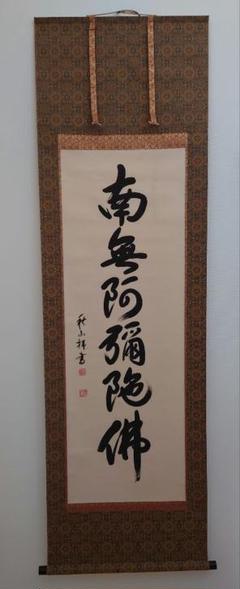 南無阿彌陀佛
秋山祥書